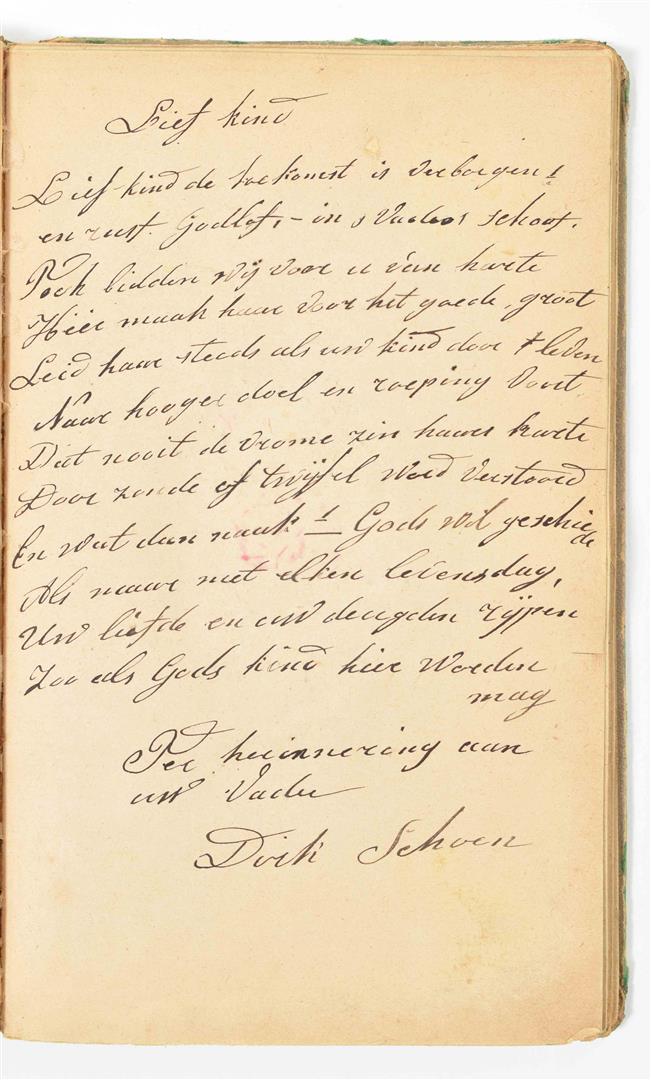 Lief kind
Lief kind de toekomst is verborgen!
en rust. Godlof, – in s Vaders schoot.
Toch bidden wij voor u van harte
Heer maak haar voor het goede, groot
Leid haar steeds als uw kind door 't leven
Naar hooger doel en roeping voort
Dat nooit de vrome zin haares harte
Door zonde of twijfel word verstoord
En wat dan naak! – Gods wil geschiede
Als maar met elken levensdag,
Uw liefde en uw deugden rijpen
Zoo als Gods kind hier worden
mag
Ter herinnering aan
uw Vader
Dirk Schoen